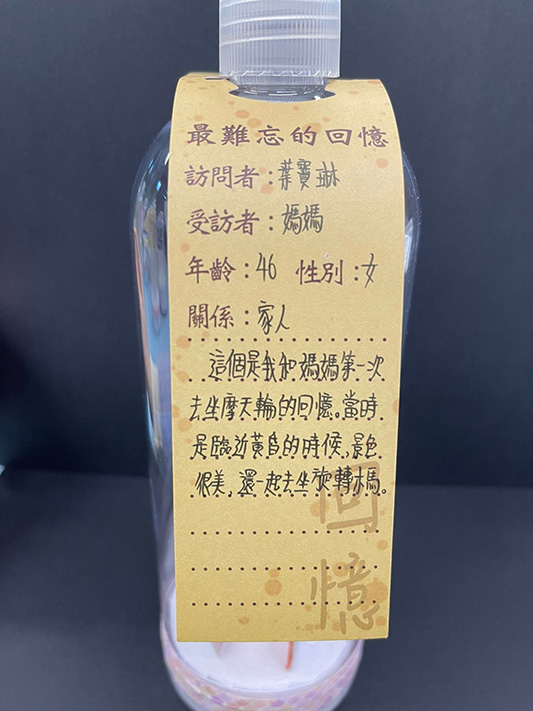 最難忘的回憶
訪問者：葉寶琳
受訪者：媽媽
年齡：46 性別：女
關係：家人
這個是我和媽媽第一次
去坐摩天輪的回憶。當時
是臨近黃昏的時候,景色
很美,還一起去坐旋轉木馬。
回
憶